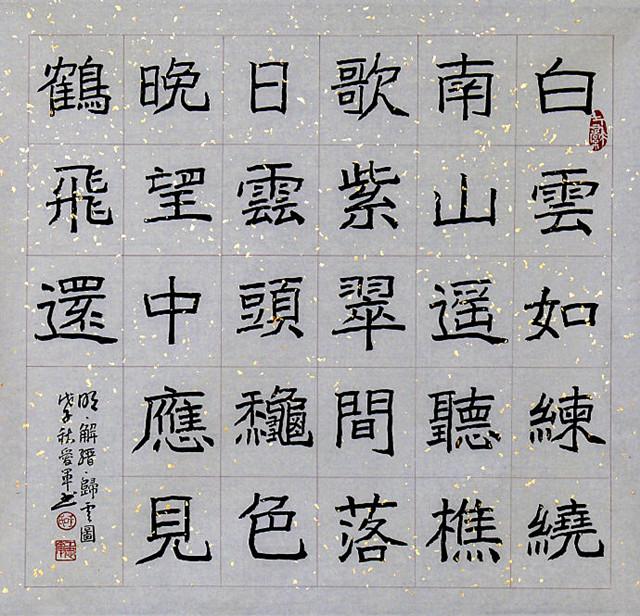 白雲如練繞
南山遥聽樵
歌紫翠間落
日雲頭龝色
晚望中應見
鶴飛還
明·解縉·歸雲圖
戊子秋爱軍书